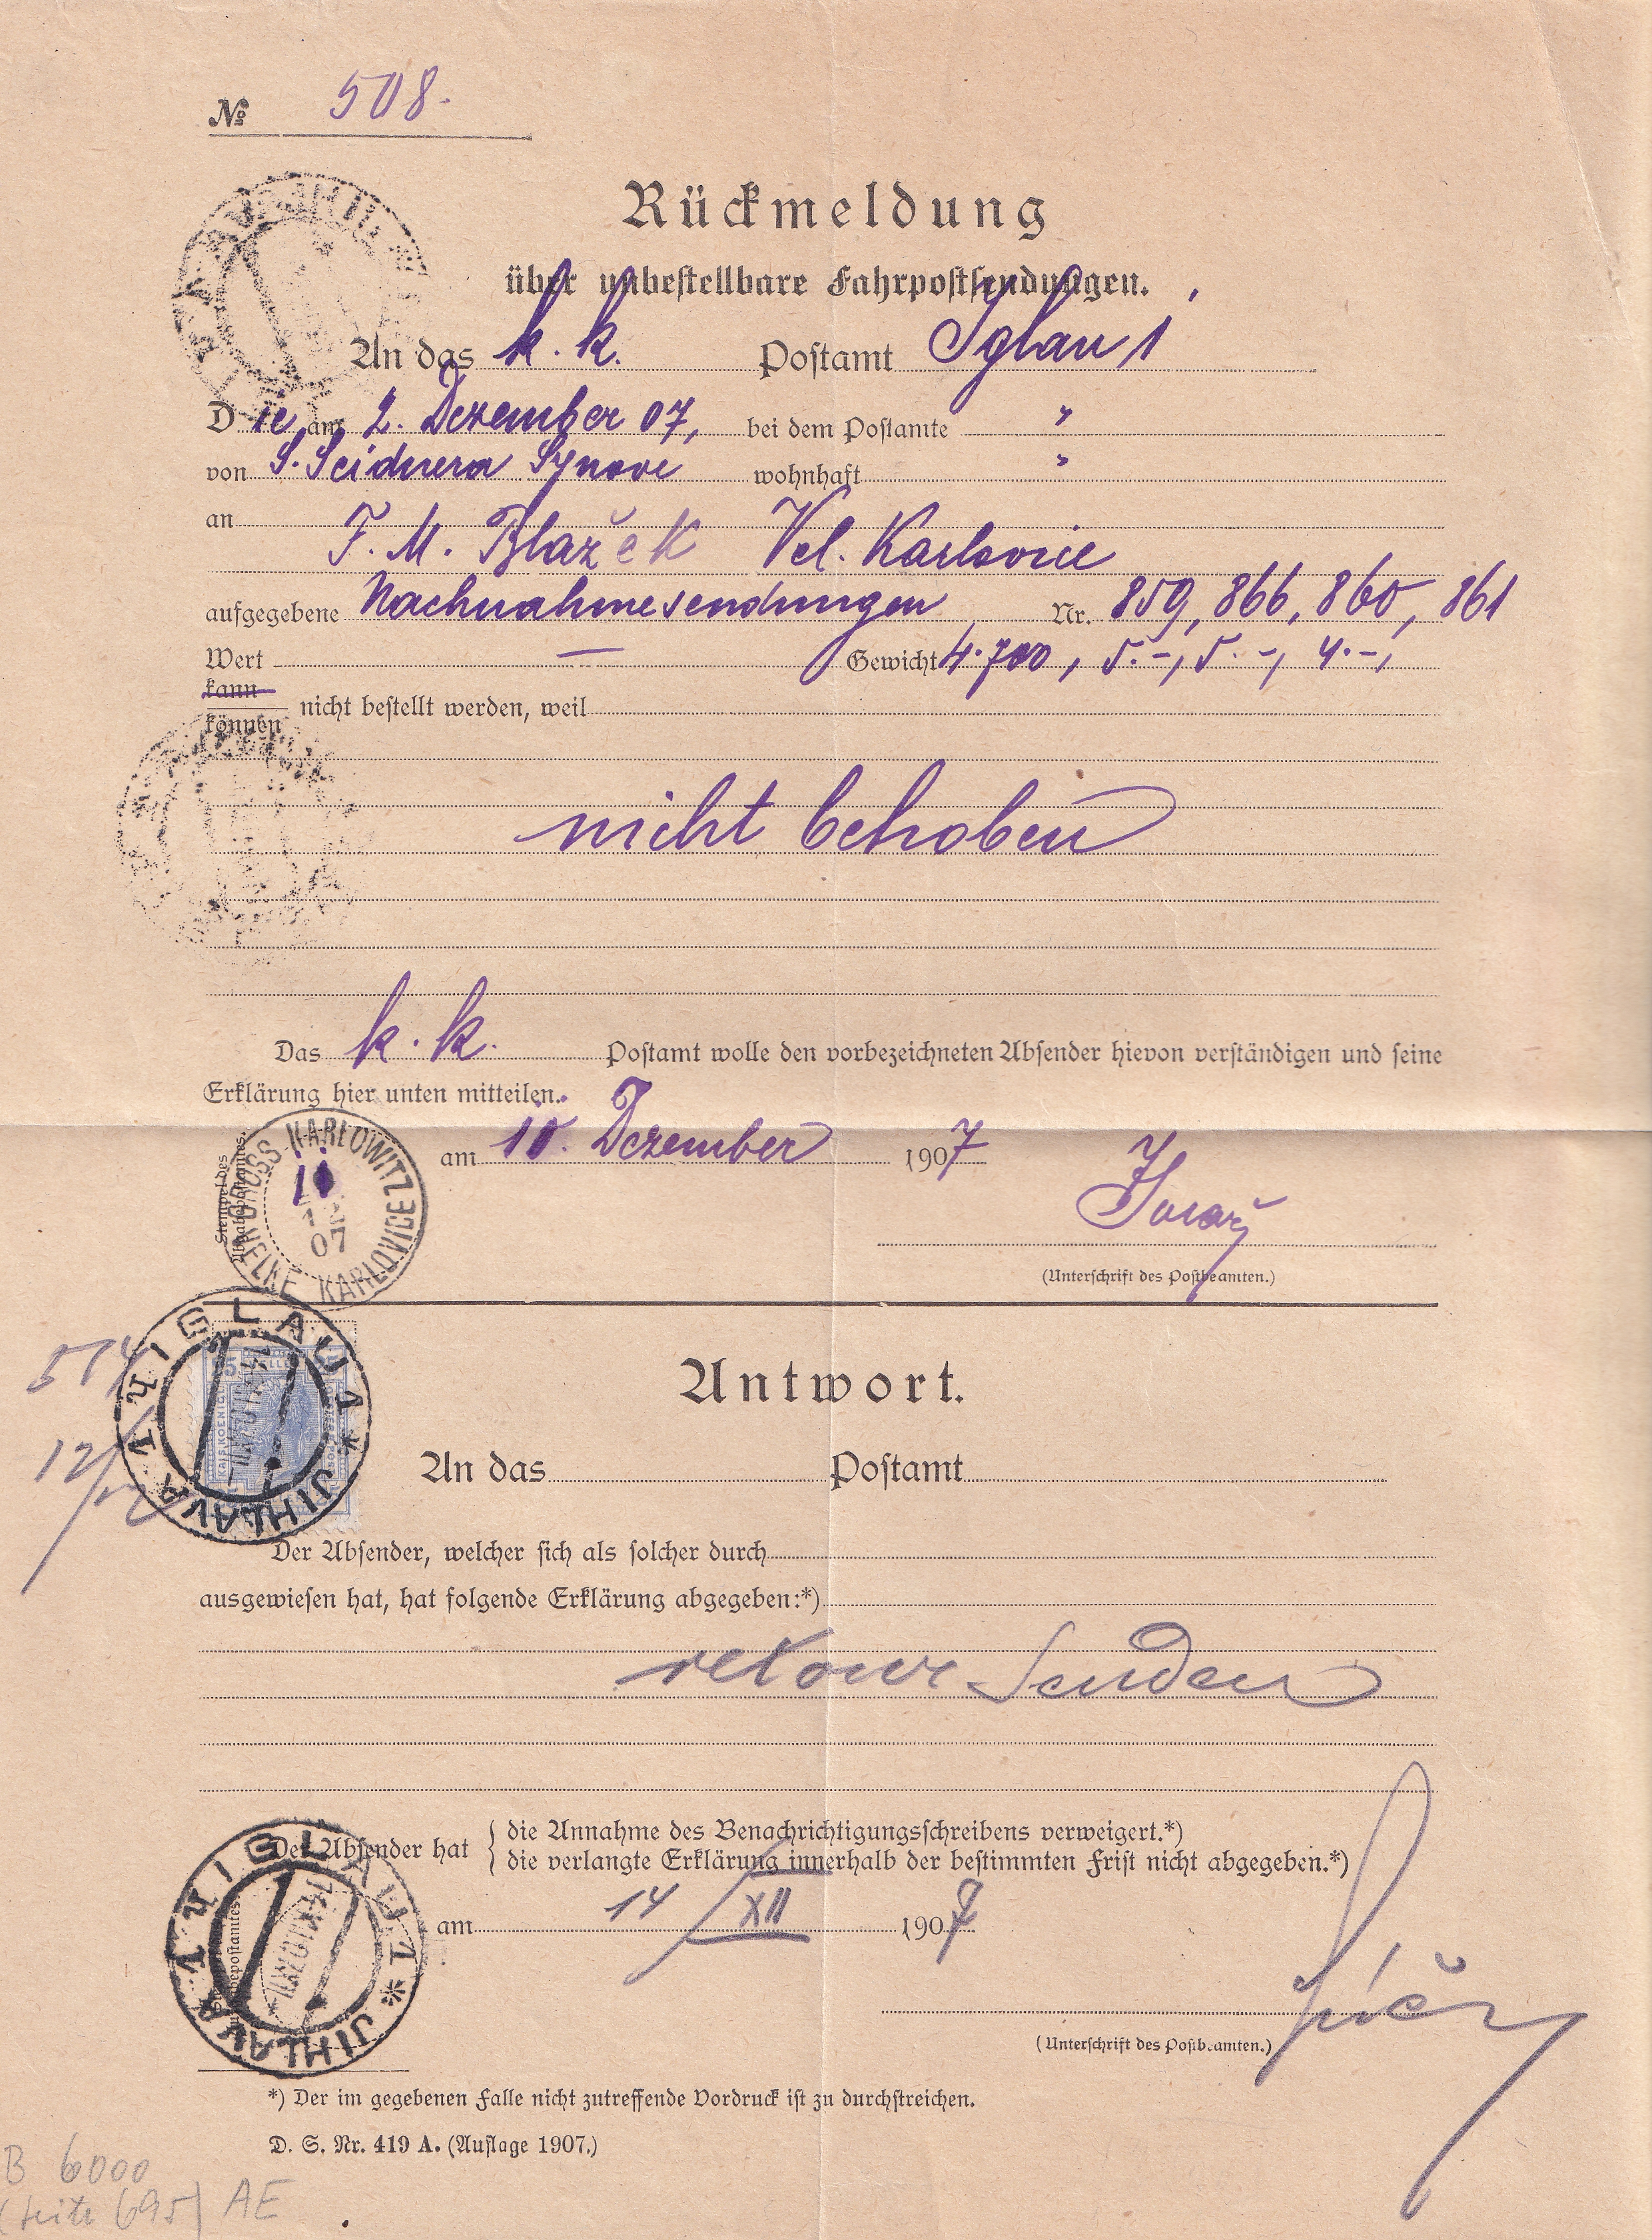 № 508.
Rückmeldung
über unbestellbare Fahrpostsendungen.
An das k. k. Postamt Iglau 1
Die am 2. Dezember 07, bei dem Postamte "
von S. Seidnera Synove wohnhaft "
an
F. M. Blažek Vel. Karlovice
aufgegebene Nachnahmesendungen Nr. 859, 866, 860, 861
Wert — Gewicht 4.700, 5.-, 5.-, 4.-,
kann
können nicht bestellt werden, weil
nicht behoben
Das k. k. Postamt wolle den vorbezeichneten Absender hievon verständigen und seine
Erklärung hier unten mitteilen.
Stempel des
Abgabepostamtes.
GROSS KARLOWITZ
VELKÉ KARLOVICE
10
12
07
am 10. Dezember 1907
(Unterschrift des Postbeamten.)
IGLAU 1 * JIHLAVA 1
Antwort.
12/
An das Postamt
Der Absender, welcher sich als solcher durch
ausgewiesen hat, hat folgende Erklärung abgegeben:*)
retour senden
Der Absender hat { die Annahme des Benachrichtigungsschreibens verweigert.*)
{ die verlangte Erklärung innerhalb der bestimmten Frist nicht abgegeben.*)
IGLAU 1 * JIHLAVA 1
am 14/XII 1907
(Unterschrift des Postbeamten.)
*) Der im gegebenen Falle nicht zutreffende Vordruck ist zu durchstreichen.
D. S. Nr. 419 A. (Auflage 1907.)
B 6000
(Seite 695) AE